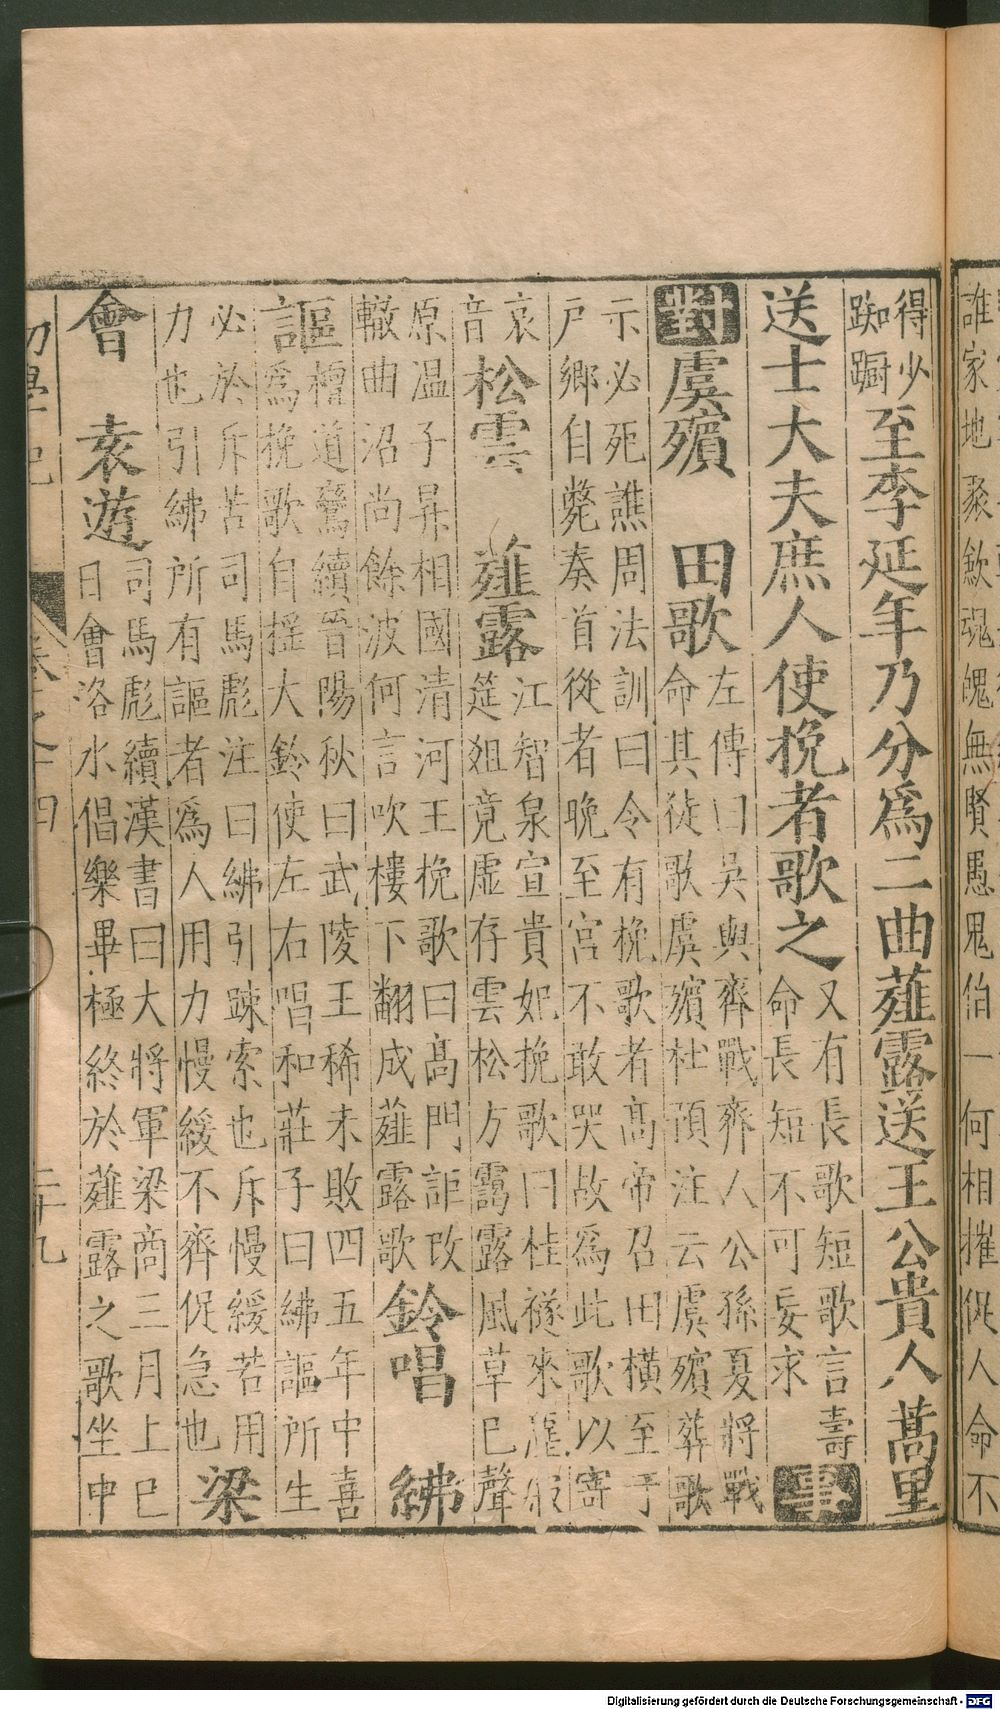 誰家地聚歛魂魄無賢愚鬼伯一何相摧促人命不
得少
踟蹰
至李延年乃分爲二曲薤露送王公貴人蒿里
送士大夫庶人使挽者歌之
又有長歌短歌言壽
命長短不可妄求
事
對
虞殯 田歌
左傳曰吳與齊戰齊人公孫夏將戰
命其徒歌虞殯杜預注云虞殯葬歌
示必死譙周法訓曰今有挽歌者高帝召田橫至于
尸鄉自斃奏首從者晚至宮不敢哭故爲此歌以寄
哀
音
松雲 薤露
江智泉宣貴妃挽歌曰桂襚來
筵俎竟虛存雲松方靄露風草已聲
原溫子昇相國清河王挽歌曰高門詎改
轍曲沼尚餘波何言吹樓下翻成薤露歌
鈴唱 紼
謳
檀道鸞續晉陽秋曰武陵王稀未敗四五年中喜
爲挽歌自搖大鈴使左右唱和莊子曰紼謳所生
必於斥苦司馬彪注曰紼引踈索也斥慢緩若用
力也引紼所有謳者爲人用力慢緩不齊促急也
梁
會 袁遊
司馬彪續漢書曰大將軍梁商三月上巳
日會洛水倡樂畢極終於薤露之歌坐中
初學記
Digitalisierung gefördert durch die Deutsche Forschungsgemeinschaft - DFG